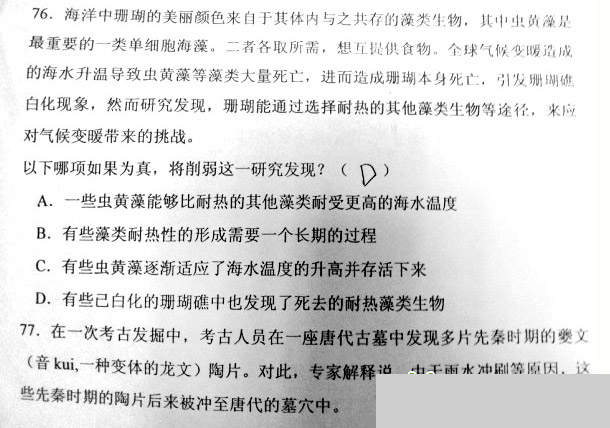 76．海洋中珊瑚的美丽颜色来自于其体内与之共存的藻类生物，其中虫黄藻是
最重要的一类单细胞海藻。二者各取所需，想互提供食物。全球气候变暖造成
的海水升温导致虫黄藻等藻类大量死亡，进而造成珊瑚本身死亡，引发珊瑚礁
白化现象，然而研究发现，珊瑚能通过选择耐热的其他藻类生物等途径，来应
对气候变暖带来的挑战。
以下哪项如果为真，将削弱这一研究发现？（ D ）
A．一些虫黄藻能够比耐热的其他藻类耐受更高的海水温度
B．有些藻类耐热性的形成需要一个长期的过程
C．有些虫黄藻逐渐适应了海水温度的升高并存活下来
D．有些已白化的珊瑚礁中也发现了死去的耐热藻类生物
77．在一次考古发掘中，考古人员在一座唐代古墓中发现多片先秦时期的夔文
（音 kui,一种变体的龙文）陶片。对此，专家解释说，由于雨水冲刷等原因，这
些先秦时期的陶片后来被冲至唐代的墓穴中。